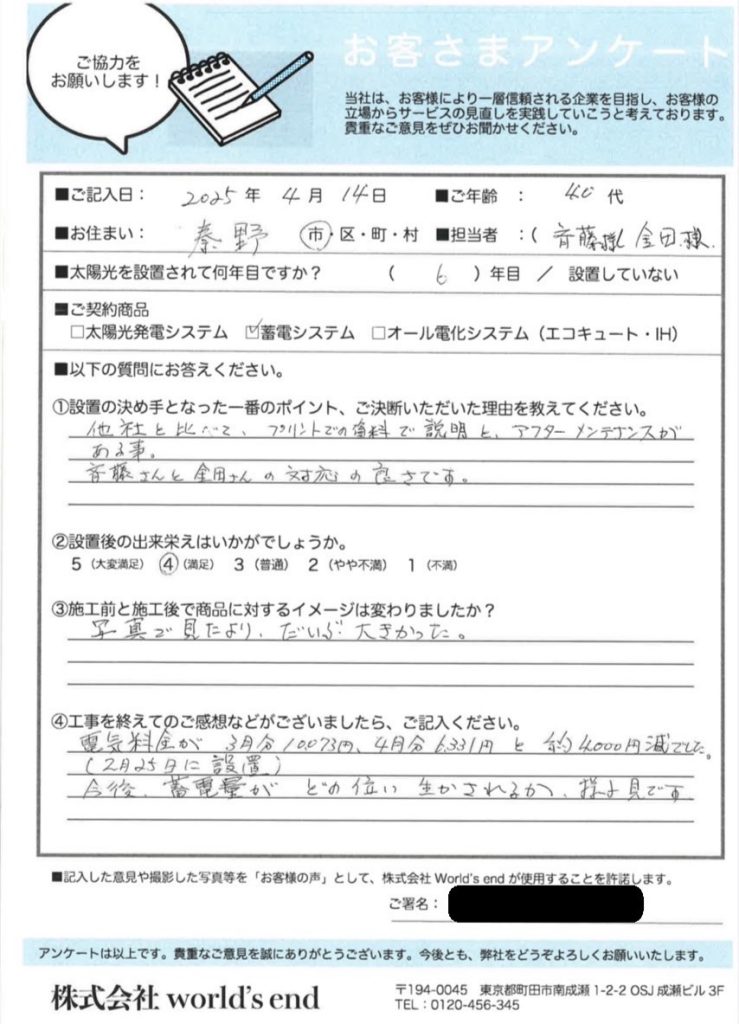 ご協力を
お願いします！
お客さまアンケート
当社は、お客様により一層信頼される企業を目指し、お客様の
立場からサービスの見直しを実践していこうと考えております。
貴重なご意見をぜひお聞かせください。
■ご記入日： 2025年 4月 14日 ■ご年齢 ： 40代
■お住まい： 秦野 市・区・町・村 ■担当者 ：( 斉藤様 金田様.
■太陽光を設置されて何年目ですか？ （ 6 ）年目 ／ 設置していない
■ご契約商品
□太陽光発電システム ☑蓄電システム □オール電化システム（エコキュート・IH）
■以下の質問にお答えください。
①設置の決め手となった一番のポイント、ご決断いただいた理由を教えてください。
他社と比べて、プリントでの資料で説明と、アフターメンテナンスが
ある事。
斉藤さんと金田さんの対応の良さです。
②設置後の出来栄えはいかがでしょうか。
5（大変満足） ④（満足） 3（普通） 2（やや不満） 1（不満）
③施工前と施工後で商品に対するイメージは変わりましたか？
写真で見たより、だいぶ大きかった。
④工事を終えてのご感想などがございましたら、ご記入ください。
電気料金が 3月分10,073円、4月分6,331円と約4,000円減でした。
(2月25日に設置)
今後、蓄電量がどの位い生かされるか、様子見です
■記入した意見や撮影した写真等を「お客様の声」として、株式会社 World's end が使用することを許諾します。
ご署名：
アンケートは以上です。貴重なご意見を誠にありがとうございます。今後とも、弊社をどうぞよろしくお願いいたします。
株式会社 world's end
〒194-0045 東京都町田市南成瀬 1-2-2 OSJ 成瀬ビル 3F
TEL：0120-456-345